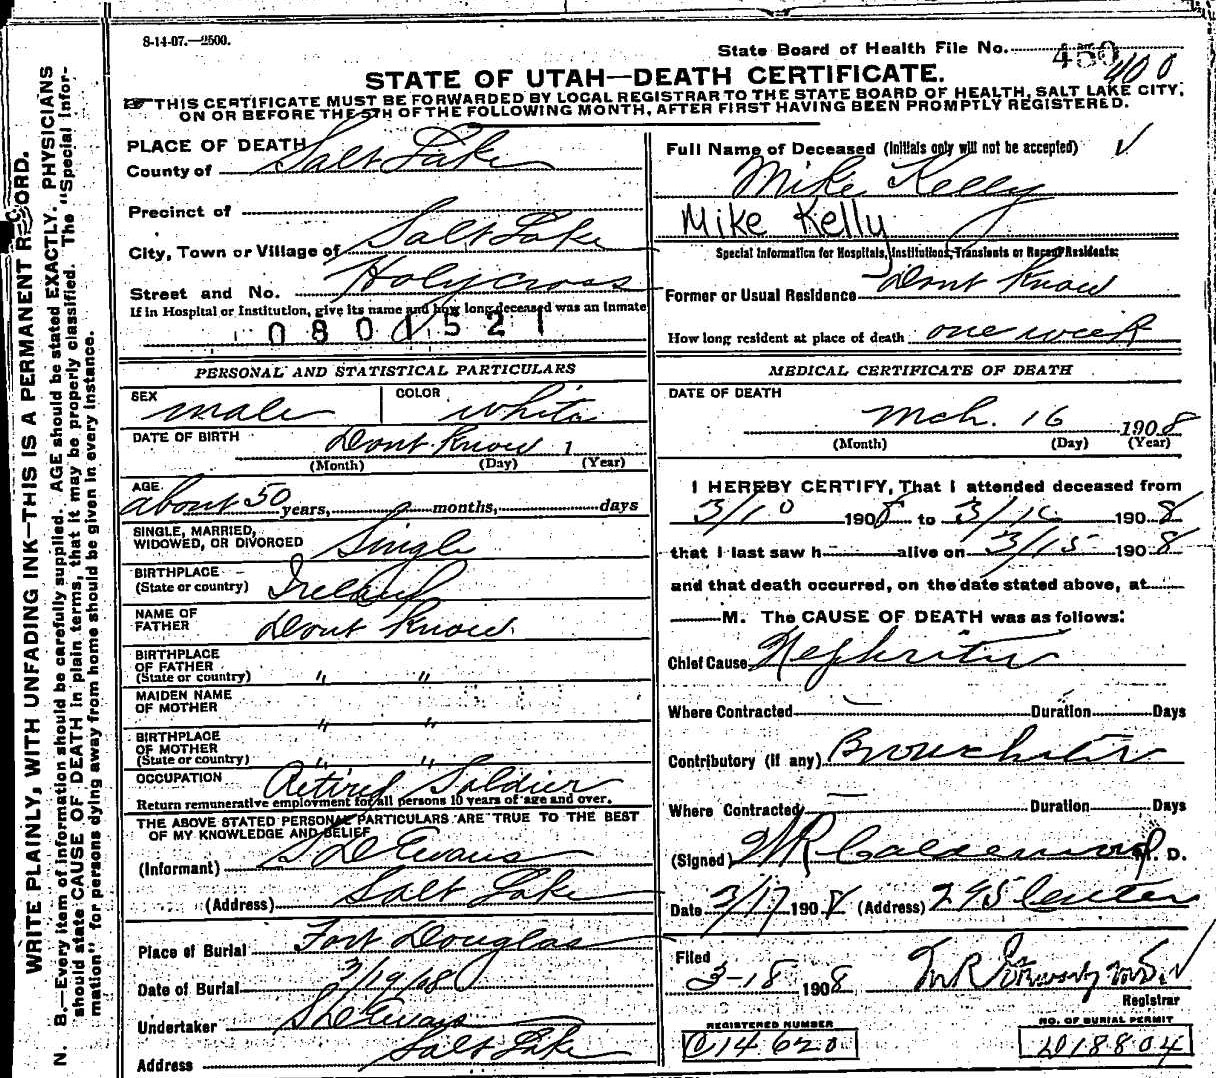 8-14-07.—2500.
State Board of Health File No. 450
400
STATE OF UTAH—DEATH CERTIFICATE.
THIS CERTIFICATE MUST BE FORWARDED BY LOCAL REGISTRAR TO THE STATE BOARD OF HEALTH, SALT LAKE CITY,
ON OR BEFORE THE 5TH OF THE FOLLOWING MONTH, AFTER FIRST HAVING BEEN PROMPTLY REGISTERED.
WRITE PLAINLY, WITH UNFADING INK—THIS IS A PERMANENT RECORD.
N. B.—Every item of information should be carefully supplied. AGE should be stated EXACTLY. PHYSICIANS
should state CAUSE OF DEATH in plain terms, that it may be properly classified. The "Special Infor-
mation" for persons dying away from home should be given in every instance.
PLACE OF DEATH
County of Salt Lake
Precinct of
City, Town or Village of Salt Lake
Street and No. Holy cross
If in Hospital or Institution, give its name and how long deceased was an inmate
0801521
PERSONAL AND STATISTICAL PARTICULARS
SEX male COLOR white
DATE OF BIRTH Dont Know 1
(Month) (Day) (Year)
AGE about 50 years, months, days
SINGLE, MARRIED,
WIDOWED, OR DIVORCED Single
BIRTHPLACE
(State or country) Ireland
NAME OF
FATHER Dont Know
BIRTHPLACE
OF FATHER
(State or country) " "
MAIDEN NAME
OF MOTHER " "
BIRTHPLACE
OF MOTHER
(State or country) " "
OCCUPATION Retired Soldier
Return remunerative employment for all persons 10 years of age and over.
THE ABOVE STATED PERSONAL PARTICULARS ARE TRUE TO THE BEST
OF MY KNOWLEDGE AND BELIEF
(Informant) S D Evans
(Address) Salt Lake
Place of Burial Fort Douglas
Date of Burial 3/19/08
Undertaker S D Evans
Address Salt Lake
Full Name of Deceased (Initials only will not be accepted)
Mike Kelly
Mike Kelly
Special Information for Hospitals, Institutions, Transients or Recent Residents:
Former or Usual Residence Dont Know
How long resident at place of death one week
MEDICAL CERTIFICATE OF DEATH
DATE OF DEATH
Mch. 16 1908
(Month) (Day) (Year)
I HEREBY CERTIFY, That I attended deceased from
3/10 1908 to 3/16 1908
that I last saw h alive on 3/15 1908
and that death occurred, on the date stated above, at
M. The CAUSE OF DEATH was as follows:
Chief Cause Nephritis
Where Contracted — Duration Days
Contributory (if any) Bronchitis
Where Contracted — Duration Days
(Signed) M. D.
Date 3/17 1908 (Address) 295 Center
Filed
3-18 1908
Registrar
REGISTERED NUMBER
C14620
NO. OF BURIAL PERMIT
D18804